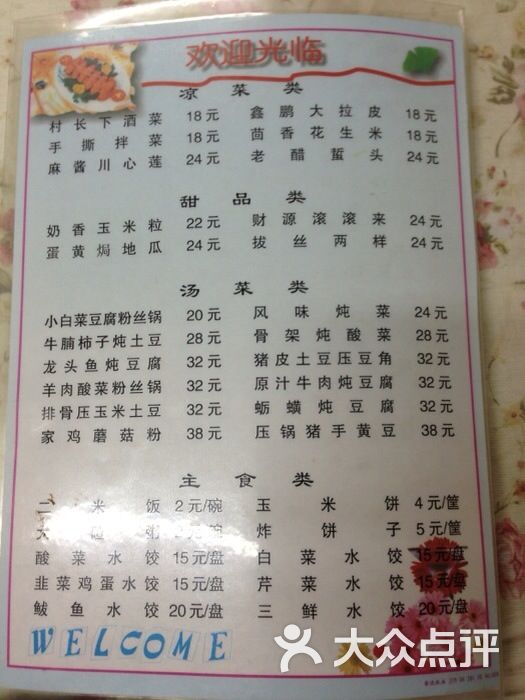 欢迎光临
凉菜类
村长下酒菜 18元 鑫鹏大拉皮 18元
手撕拌菜 18元 茴香花生米 18元
麻酱川心莲 24元 老醋蜇头 24元
甜品类
奶香玉米粒 22元 财源滚滚来 24元
蛋黄焗地瓜 24元 拔丝两样 24元
汤菜类
小白菜豆腐粉丝锅 20元 风味炖菜 24元
牛腩柿子炖土豆 28元 骨架炖酸菜 28元
龙头鱼炖豆腐 32元 猪皮土豆压豆角 32元
羊肉酸菜粉丝锅 32元 原汁牛肉炖豆腐 32元
排骨压玉米土豆 32元 蛎蟥炖豆腐 32元
家鸡蘑菇粉 38元 压锅猪手黄豆 38元
主食类
二米饭 2元/碗 玉米饼 4元/筐
大碴粥 元/碗 炸饼子 5元/筐
酸菜水饺 15元/盘 白菜水饺 15元/盘
韭菜鸡蛋水饺 15元/盘 芹菜水饺 15元/盘
鲅鱼水饺 20元/盘 三鲜水饺 20元/盘
WELCOME
大众点评